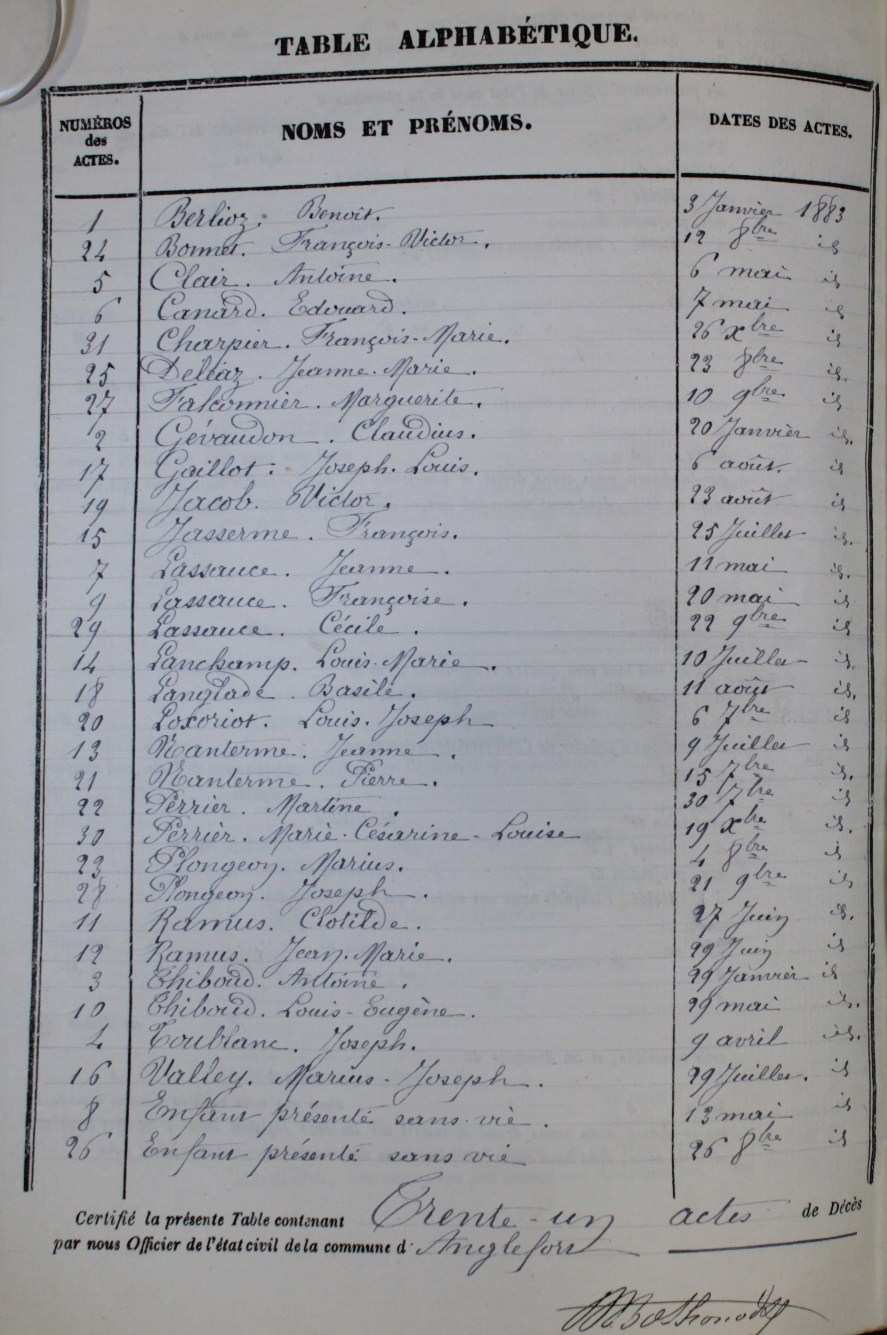 TABLE ALPHABÉTIQUE.
NUMÉROS des ACTES. NOMS ET PRÉNOMS. DATES DES ACTES.
1 Berlioz. Benoît. 3 Janvier 1883
24 Bonnet. François-Victor. 12 8bre id
5 Clair. Antoine. 6 mai id
6 Canard. Edouard. 7 mai id
31 Charpier. François-Marie. 26 xbre id
25 Delléaz. Jeanne-Marie. 23 8bre id.
27 Falconnier. Marguerite. 10 9bre id
2 Gévaudon. Claudius. 20 Janvier id.
17 Gaillot. Joseph. Louis. 6 août. id
19 Jacob. Victor. 23 août id
15 Jasserme. François. 25 Juillet id.
7 Lassauce. Jeanne. 11 mai id.
9 Lassauce. Françoise. 20 mai id
29 Lassauce. Cécile. 22 9bre id
14 Lanchamp. Louis-Marie. 10 Juillet id.
18 Langlade. Basile. 11 août id.
20 Loxoriot. Louis. Joseph 6 7bre id
13 Nanterme. Jeanne. 9 Juillet id
21 Nanterme. Pierre. 15 7bre id.
22 Perrier. Martine. 30 7bre id
30 Perrier. Marie-Césarine-Louise 19 xbre id.
23 Plongeon. Marius. 4 8bre id
28 Plongeon. Joseph. 21 9bre id
11 Ramus. Clotilde. 27 Juin id.
12 Ramus. Jean-Marie. 29 Juin id
3 Thiboud. Antoine. 29 Janvier id
10 Thiboud. Louis-Eugène. 29 mai id.
4 Toublanc. Joseph. 9 avril id.
16 Valley. Marius-Joseph. 29 Juillet. id
8 Enfant présenté sans vie. 13 mai id
26 Enfant présenté sans vie 26 8bre id
Certifié la présente Table contenant Trente-un actes de Décès
par nous Officier de l'état civil de la commune d'Anglefort